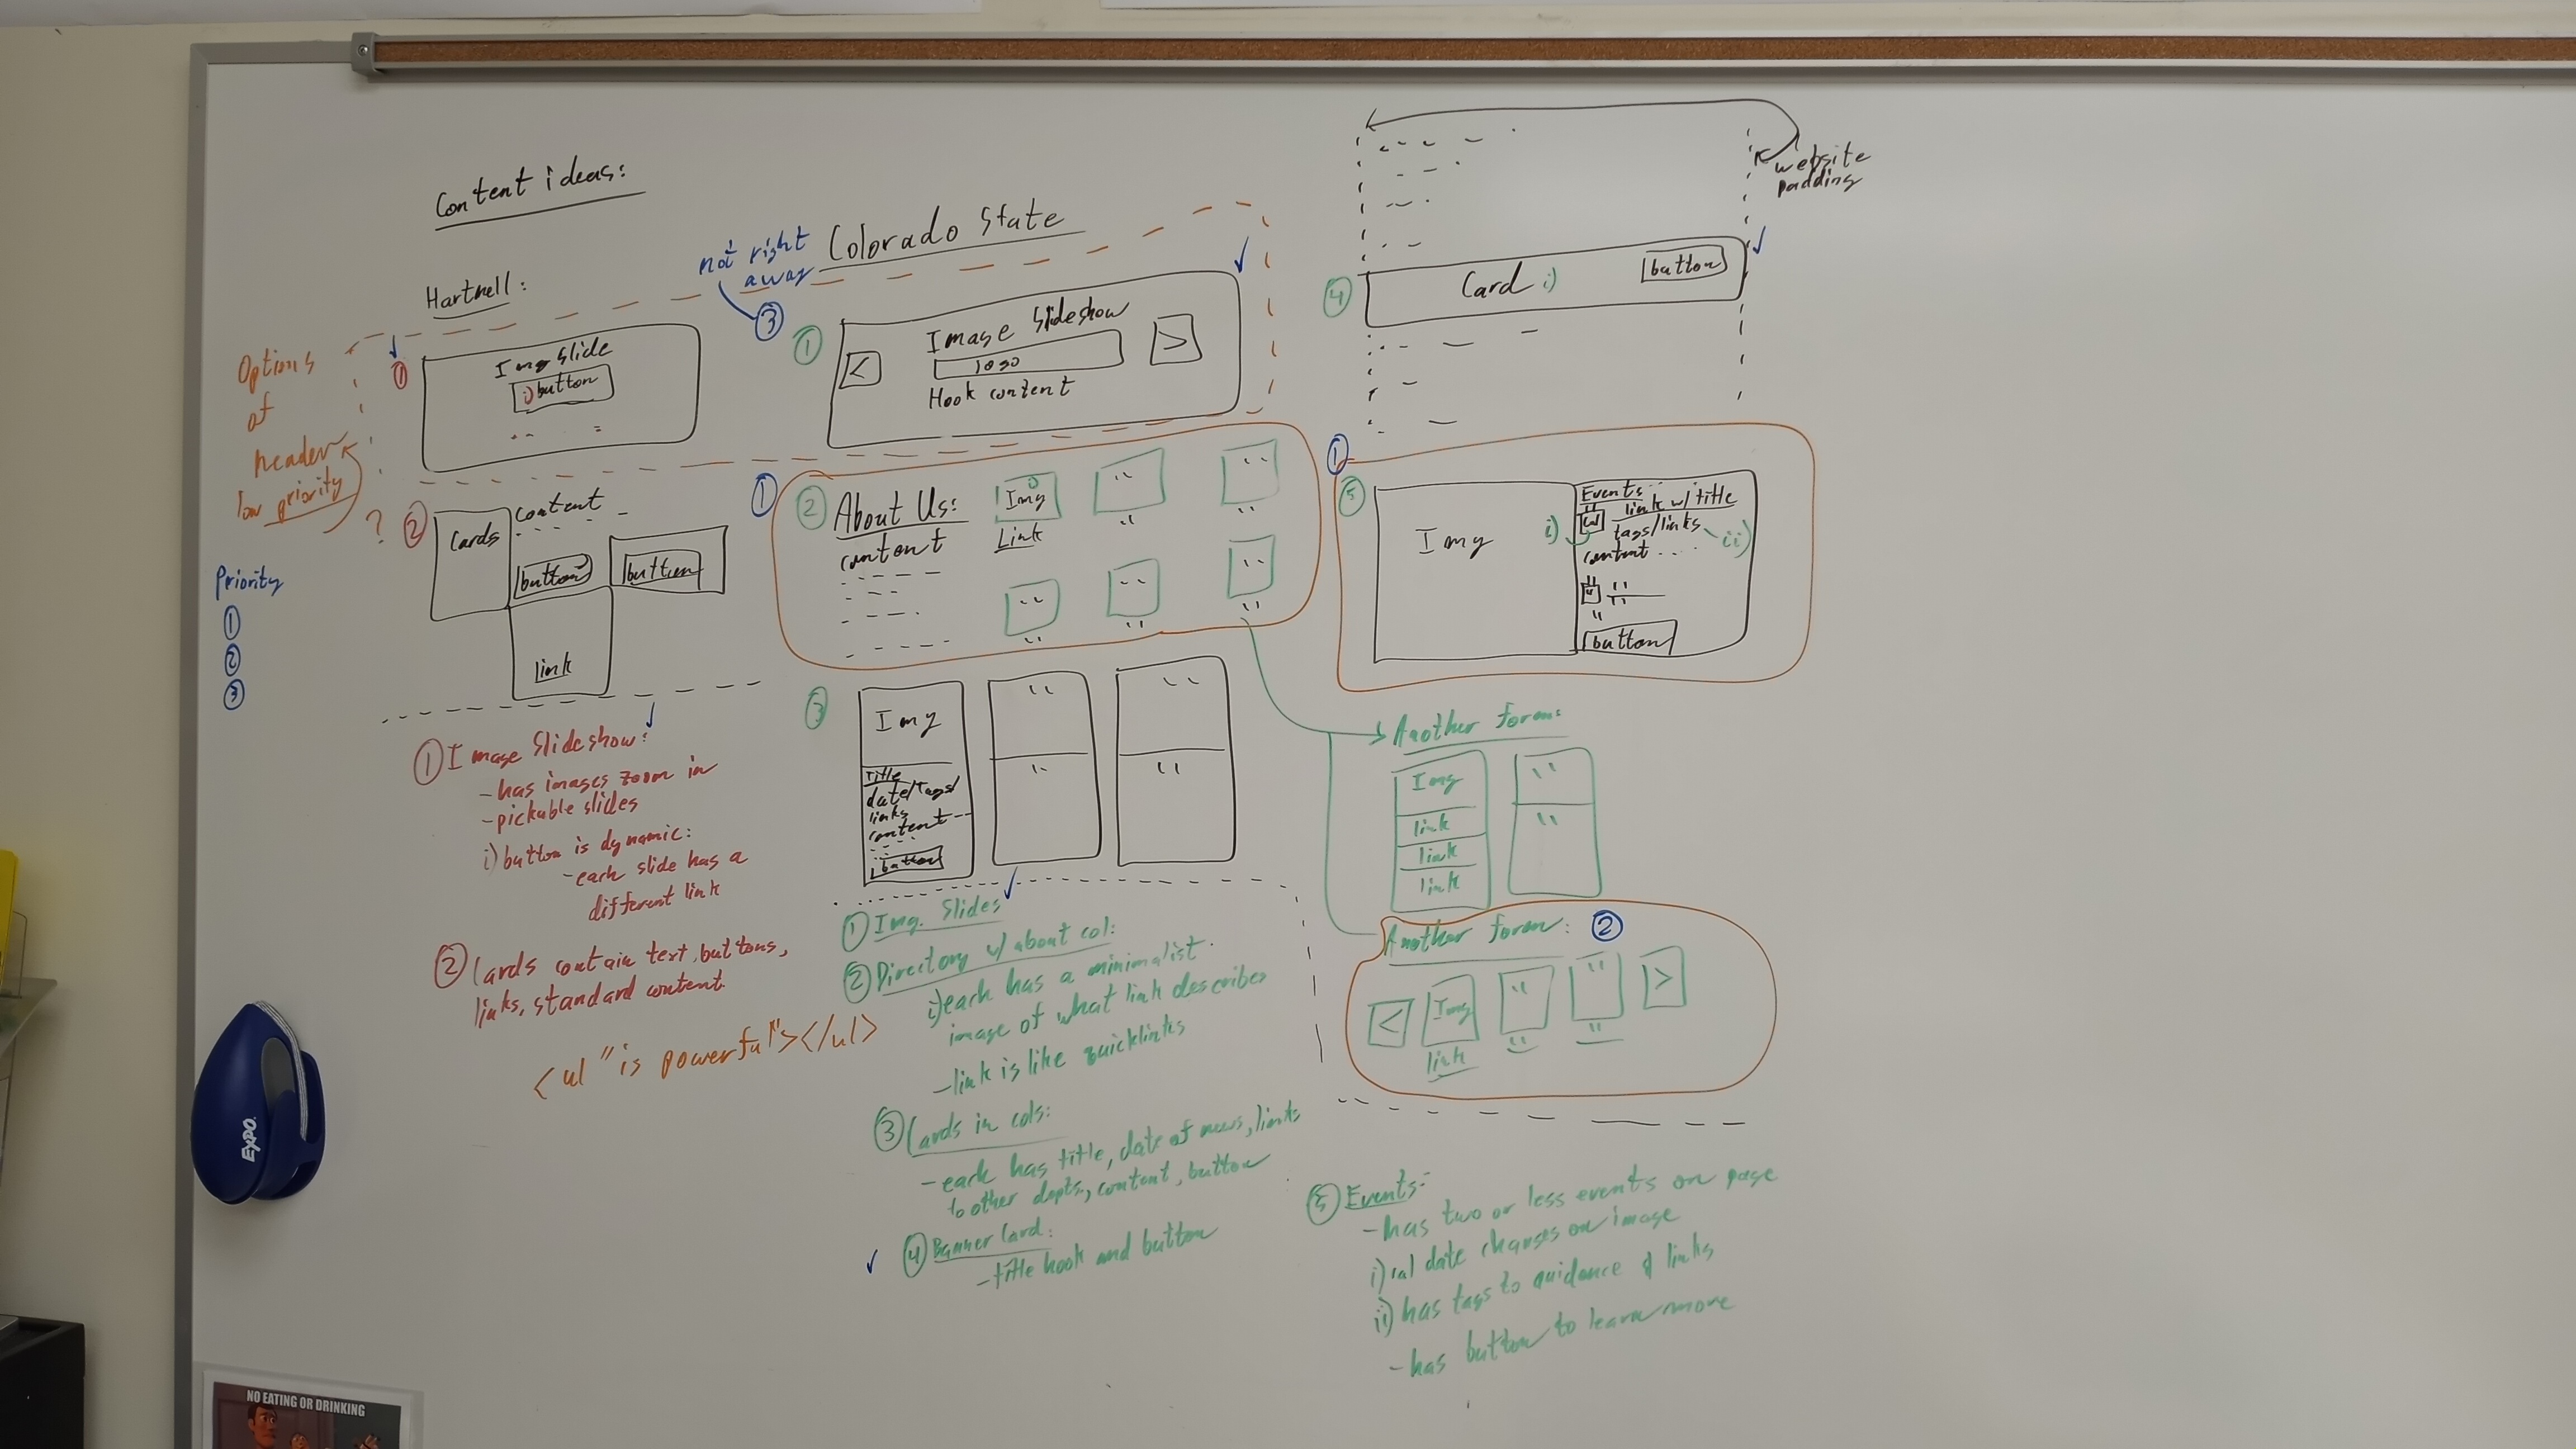 Content ideas:
Hartnell:
Options
of
header
low priority
Priority
①
②
③
①
Img slide
i) button
?
②
Cards
content
button
button
link
① Image Slideshow:
- has images zoom in
- pickable slides
i) button is dynamic:
- each slide has a
different link
② Cards contain text, buttons,
links, standard content
<ul "is powerful"></ul>
not right
away
③
Colorado State
①
Image Slideshow
<
logo
>
Hook content
①
②
About Us:
content
i)
Img
Link
③
Img
Title
date/Tags/
links
content
button
① Img. Slides
② Directory w/ about col:
i) each has a minimalist
image of what link describes
- link is like quicklinks
③ Cards in cols:
- each has title, date of news, links
to other depts, content, button
④ Banner Card:
- title hook and button
website
padding
④
Card i)
button
①
⑤
Img
Events
i)
cal
link w/ title
tags/links
ii)
content
button
Another form:
Img
link
link
link
Another form: ②
<
Img
>
link
⑤ Events:
- has two or less events on page
i) cal date changes on image
ii) has tags to guidance of links
- has button to learn more
EXPO
NO EATING OR DRINKING